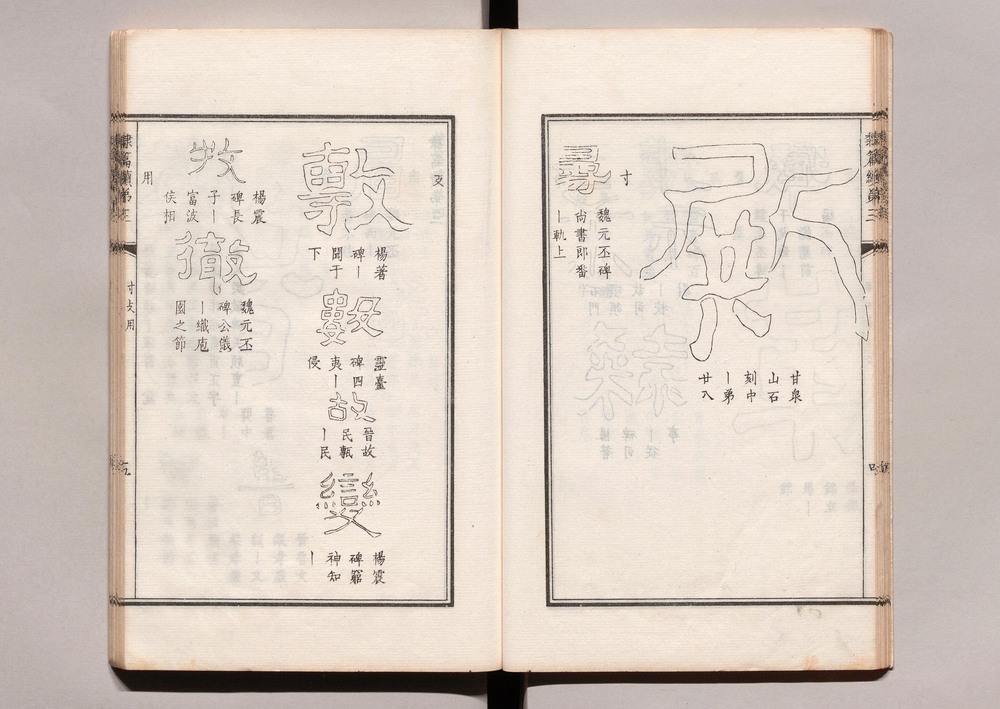 隸篇續第三
殿
甘泉
山石
刻中
丨弟
廿八
寸
魏元丕碑
尚書郎番
丨軌上
攴
敷
楊著
碑丨
聞于
下
數
靈臺
碑四
夷丨
侵
故
晉故
民甎
丨民
變
楊震
碑窮
神知
丨
牧
楊震
碑長
子丨
富波
侯相
徹
魏元丕
碑公儀
丨織庖
園之節
用
隸篇續第三
寸攴用